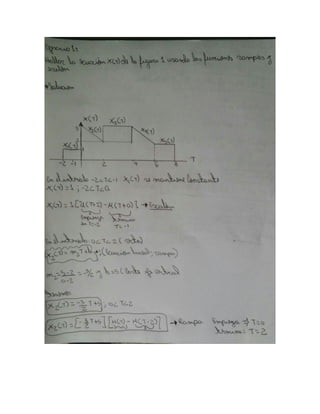 Ejercicio 1:
Hallar la ecuación X(T) de la figura 1 usando las funciones rampas y
escalón
Solución
X(T)
X3(T)
5
X2(T)
X4(T)
X1(T)
X5(T)
-2 -1 2 4 6 8 T
En el intervalo -2<T<-1 X1(T) se mantiene constante
X1(T)=1 ; -2<T<0
X1(T)=1[u(T+2)-u(T+0)] → Escalón
Empieza
en T=-2
Termina
T=-1
En el intervalo 0<T<2 (recta)
X2(T)=mT+b ; (Ecuación lineal; rampa)
m=5-2/0-2=-3/2 y b=5 (corte eje vertical
Entonces
X2(T)=-3/2T+5 ; 0<T<2
X2(T)=[-3/2T+5][u(T)-u(T-2)] → Rampa Empieza T=0
Termina: T=2